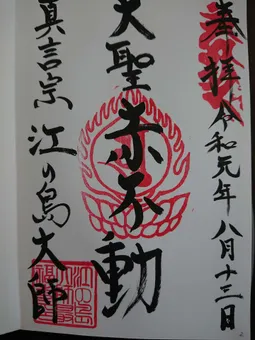 奉拝 令和元年八月十三日
大聖赤不動
真言宗 江の島大師